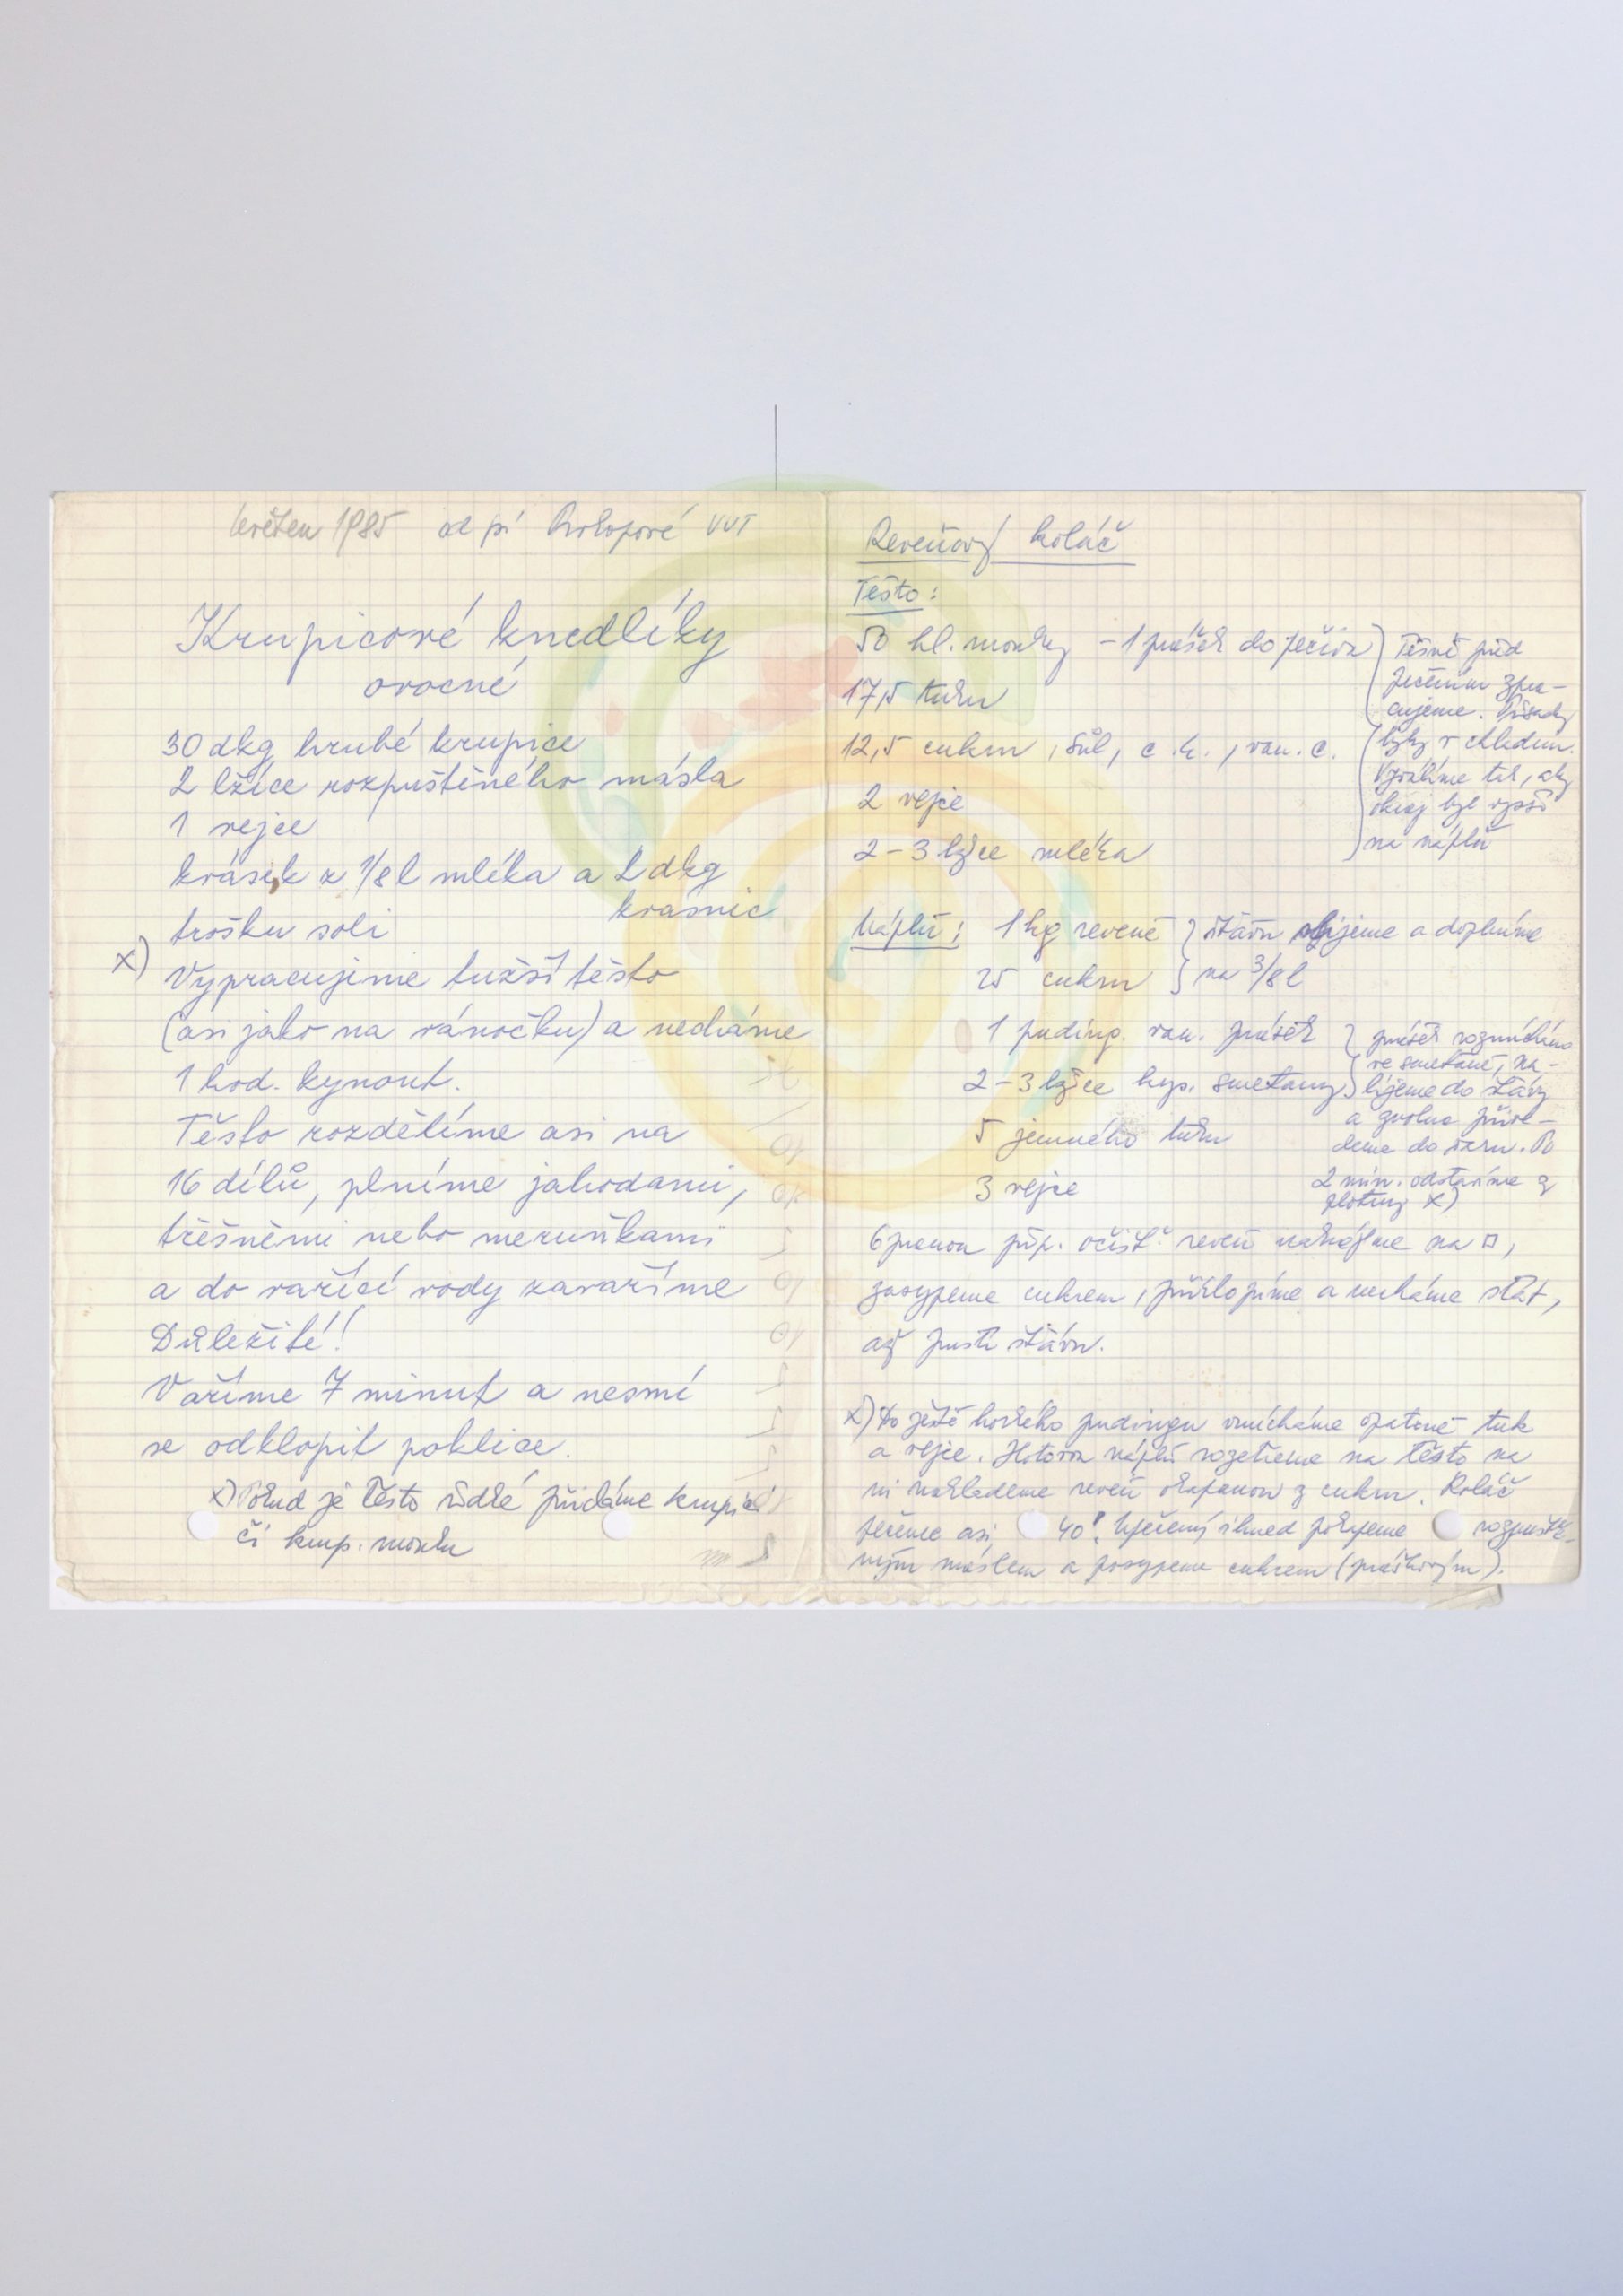 květen 1985 od pí Prokopové VUT
Krupicové knedlíky
ovocné
30 dkg hrubé krupice
2 lžíce rozpuštěného másla
1 vejce
kvásek z 1/8 l mléka a 2 dkg
kvasnic
trošku soli
x)
Vypracujeme tužší těsto
(asi jako na vánočku) a necháme
1 hod. kynout.
Těsto rozdělíme asi na
16 dílů, plníme jahodami,
třešněmi nebo meruňkami
a do vařící vody zavaříme
Důležité!
Vaříme 7 minut a nesmí
se odklopit poklice.
x) Pokud je těsto řídké přidáme krupici
či krup. mouku
Reveňový koláč
Těsto:
50 hl. mouky - 1 prášek do pečiva
17,5 tuku
12,5 cukru, sůl, c. k., van. c.
2 vejce
2-3 lžíce mléka
Těsně před
pečením zpra-
cujeme. Přísady
byly v chladnu.
Vyválíme tak, aby
okraj byl vyšší
na náplň
Náplň: 1 kg reveně } šťávu slijeme a doplníme
25 cukru } na 3/8 l
1 puding. van. prášek
2-3 lžíce kys. smetany
5 jemného tuku
3 vejce
prášek rozmícháme
ve smetaně, na-
lijeme do šťávy
a zvolna přive-
deme do varu. Po
2 min. odstavíme z
plotny x)
Opranou příp. očišť. reveň nakrájíme na □,
zasypeme cukrem, přiklopíme a necháme stát,
až pustí šťávu.
x) Do ještě horkého pudingu vmícháme opatrně tuk
a vejce. Hotovou náplň rozetřeme na těsto na
ni naklademe reveň okapanou z cukru. Koláč
pečeme asi 40'. Upečený ihned potřeme rozpuště-
ným máslem a posypeme cukrem (práškovým).